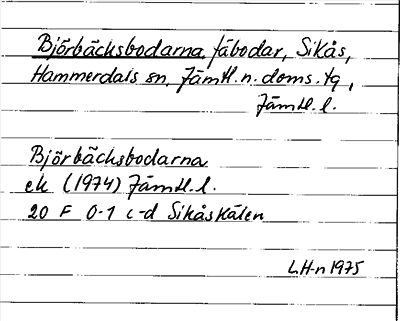 Björbäcksbodarna, fäbodar, Sikås,
Hammerdals sn, Jämtl. n. doms. tg,
Jämtl. l.
Björbäcksbodarna
ek (1974) Jämtl. l.
20 F 0-1 c-d Sikåskälen
LH-n 1975